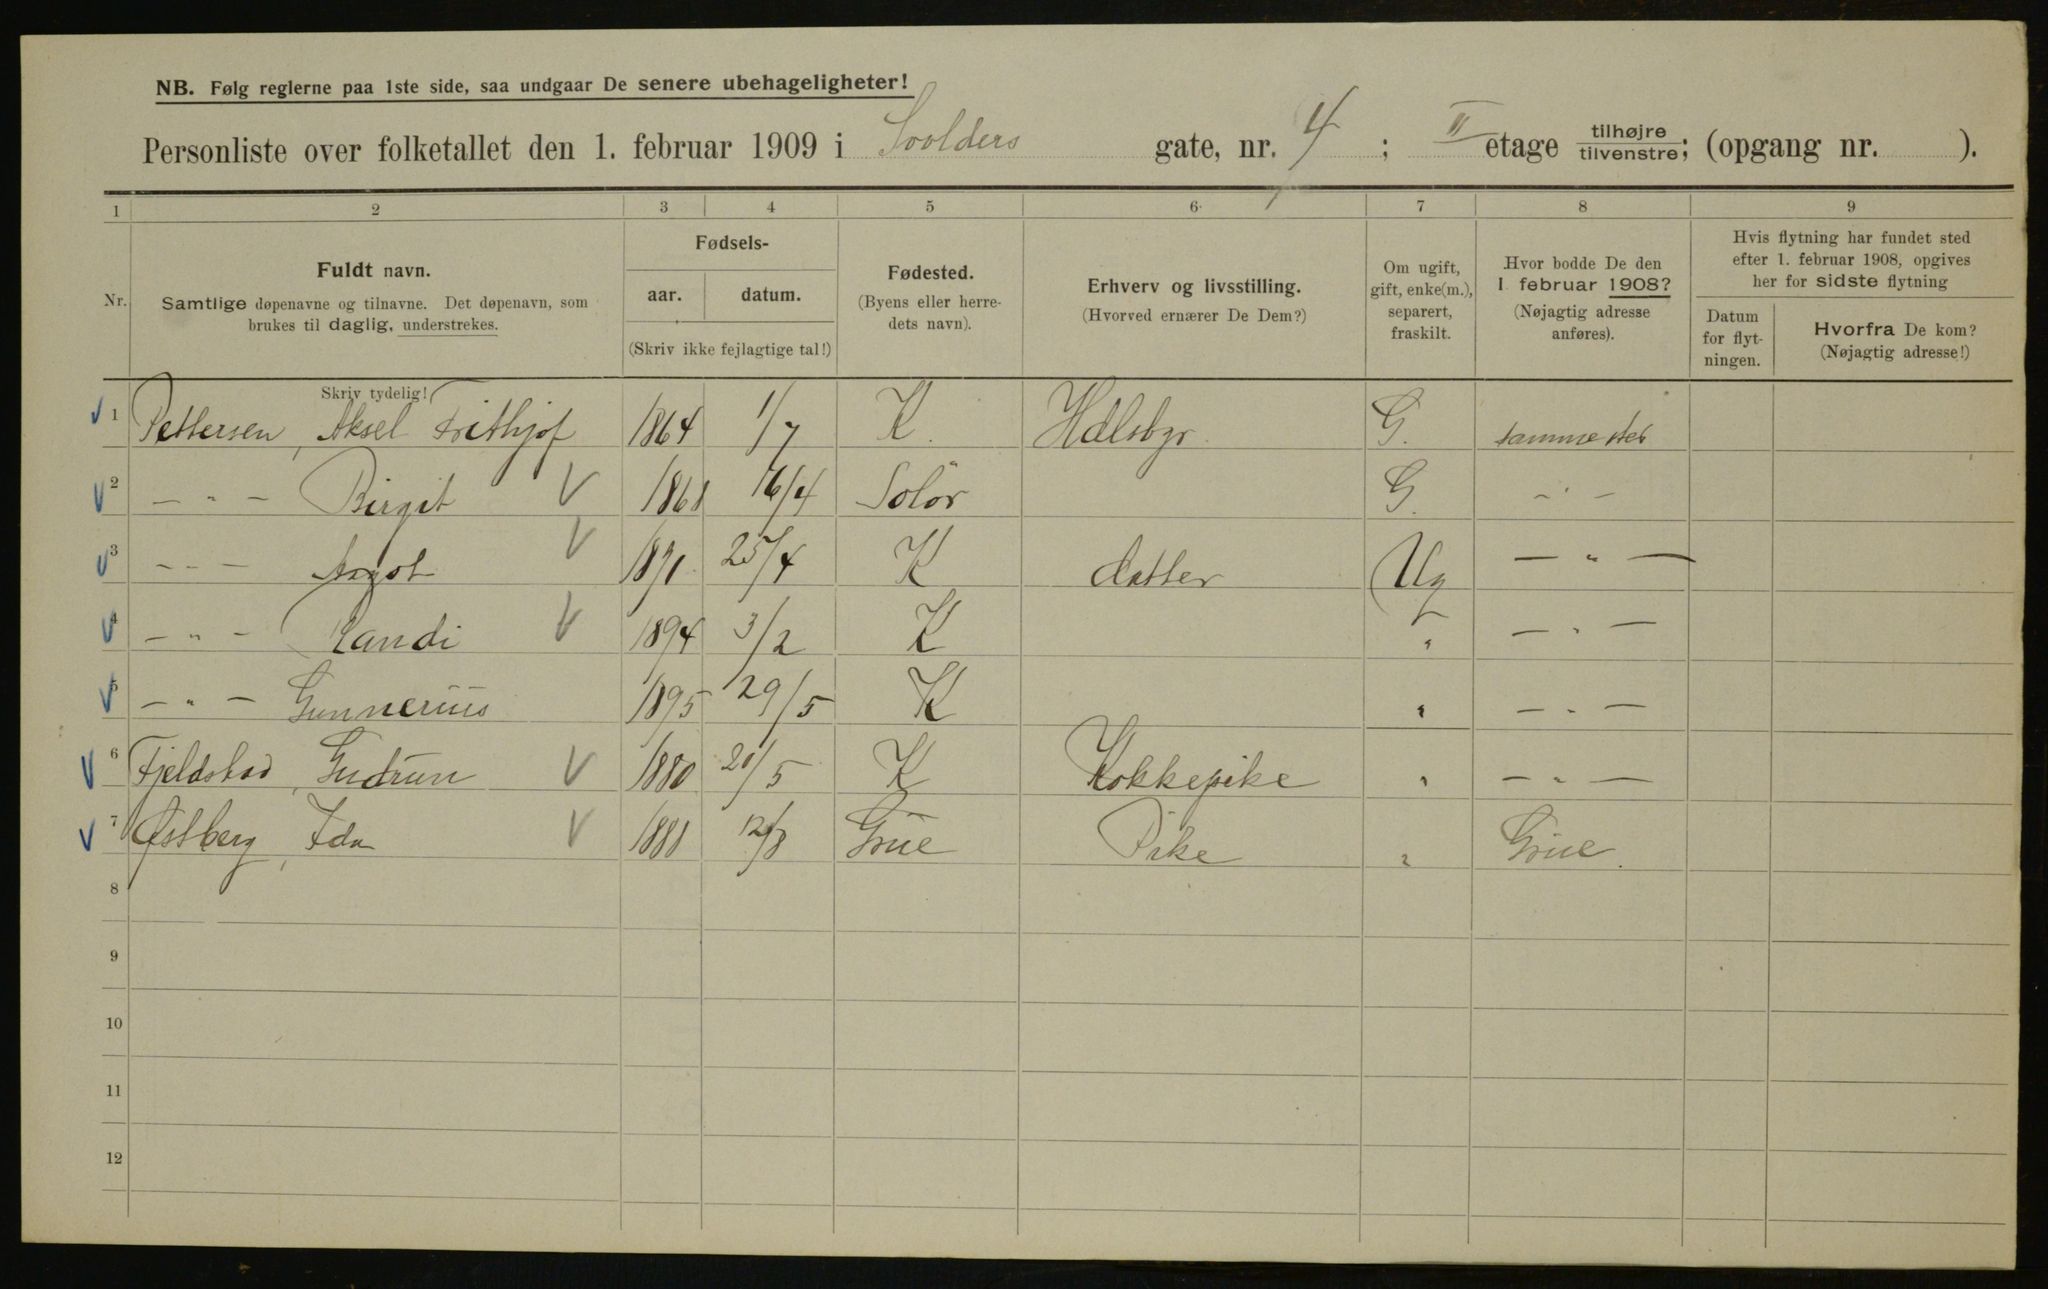 NB. Følg reglerne paa 1ste side, saa undgaar De senere ubehageligheter!
Personliste over folketallet den 1. februar 1909 i Svolders gate, nr. 4 ; II etage tilhøjre tilvenstre; (opgang nr. ).
1 2 3 4 5 6 7 8 9
Nr.
Fuldt navn.
Samtlige døpenavne og tilnavne. Det døpenavn, som
brukes til daglig, understrekes.
Fødsels-
aar. datum.
(Skriv ikke fejlagtige tal!)
Fødested.
(Byens eller herre-
dets navn).
Erhverv og livsstilling.
(Hvorved ernærer De Dem?)
Om ugift,
gift, enke(m.),
separert,
fraskilt.
Hvor bodde De den
1. februar 1908?
(Nøjagtig adresse
anføres).
Hvis flytning har fundet sted
efter 1. februar 1908, opgives
her for sidste flytning
Datum
for flyt-
ningen.
Hvorfra De kom?
(Nøjagtig adresse!)
Skriv tydelig!
1 Pettersen, Aksel Frithjof 1864 1/7 K. Hdlsbgr. G. samme sted
2 — " — Birgit 1868 16/4 Solör G. — " —
3 — " — Aagot 1891 25/4 K datter Ug — " —
4 — " — Randi 1894 3/2 K " — " —
5 — " — Gunnerius 1895 29/5 K " — " —
6 Fjeldstad, Gudrun 1880 20/5 K Kokkepike " — " —
7 Østberg, Ida 1888 12/8 Grue Pike " Grue.
8
9
10
11
12